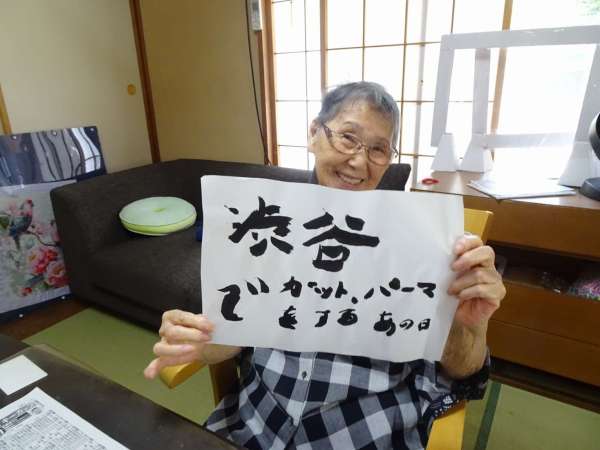 渋谷
で
カット、パーマ
をするあの日